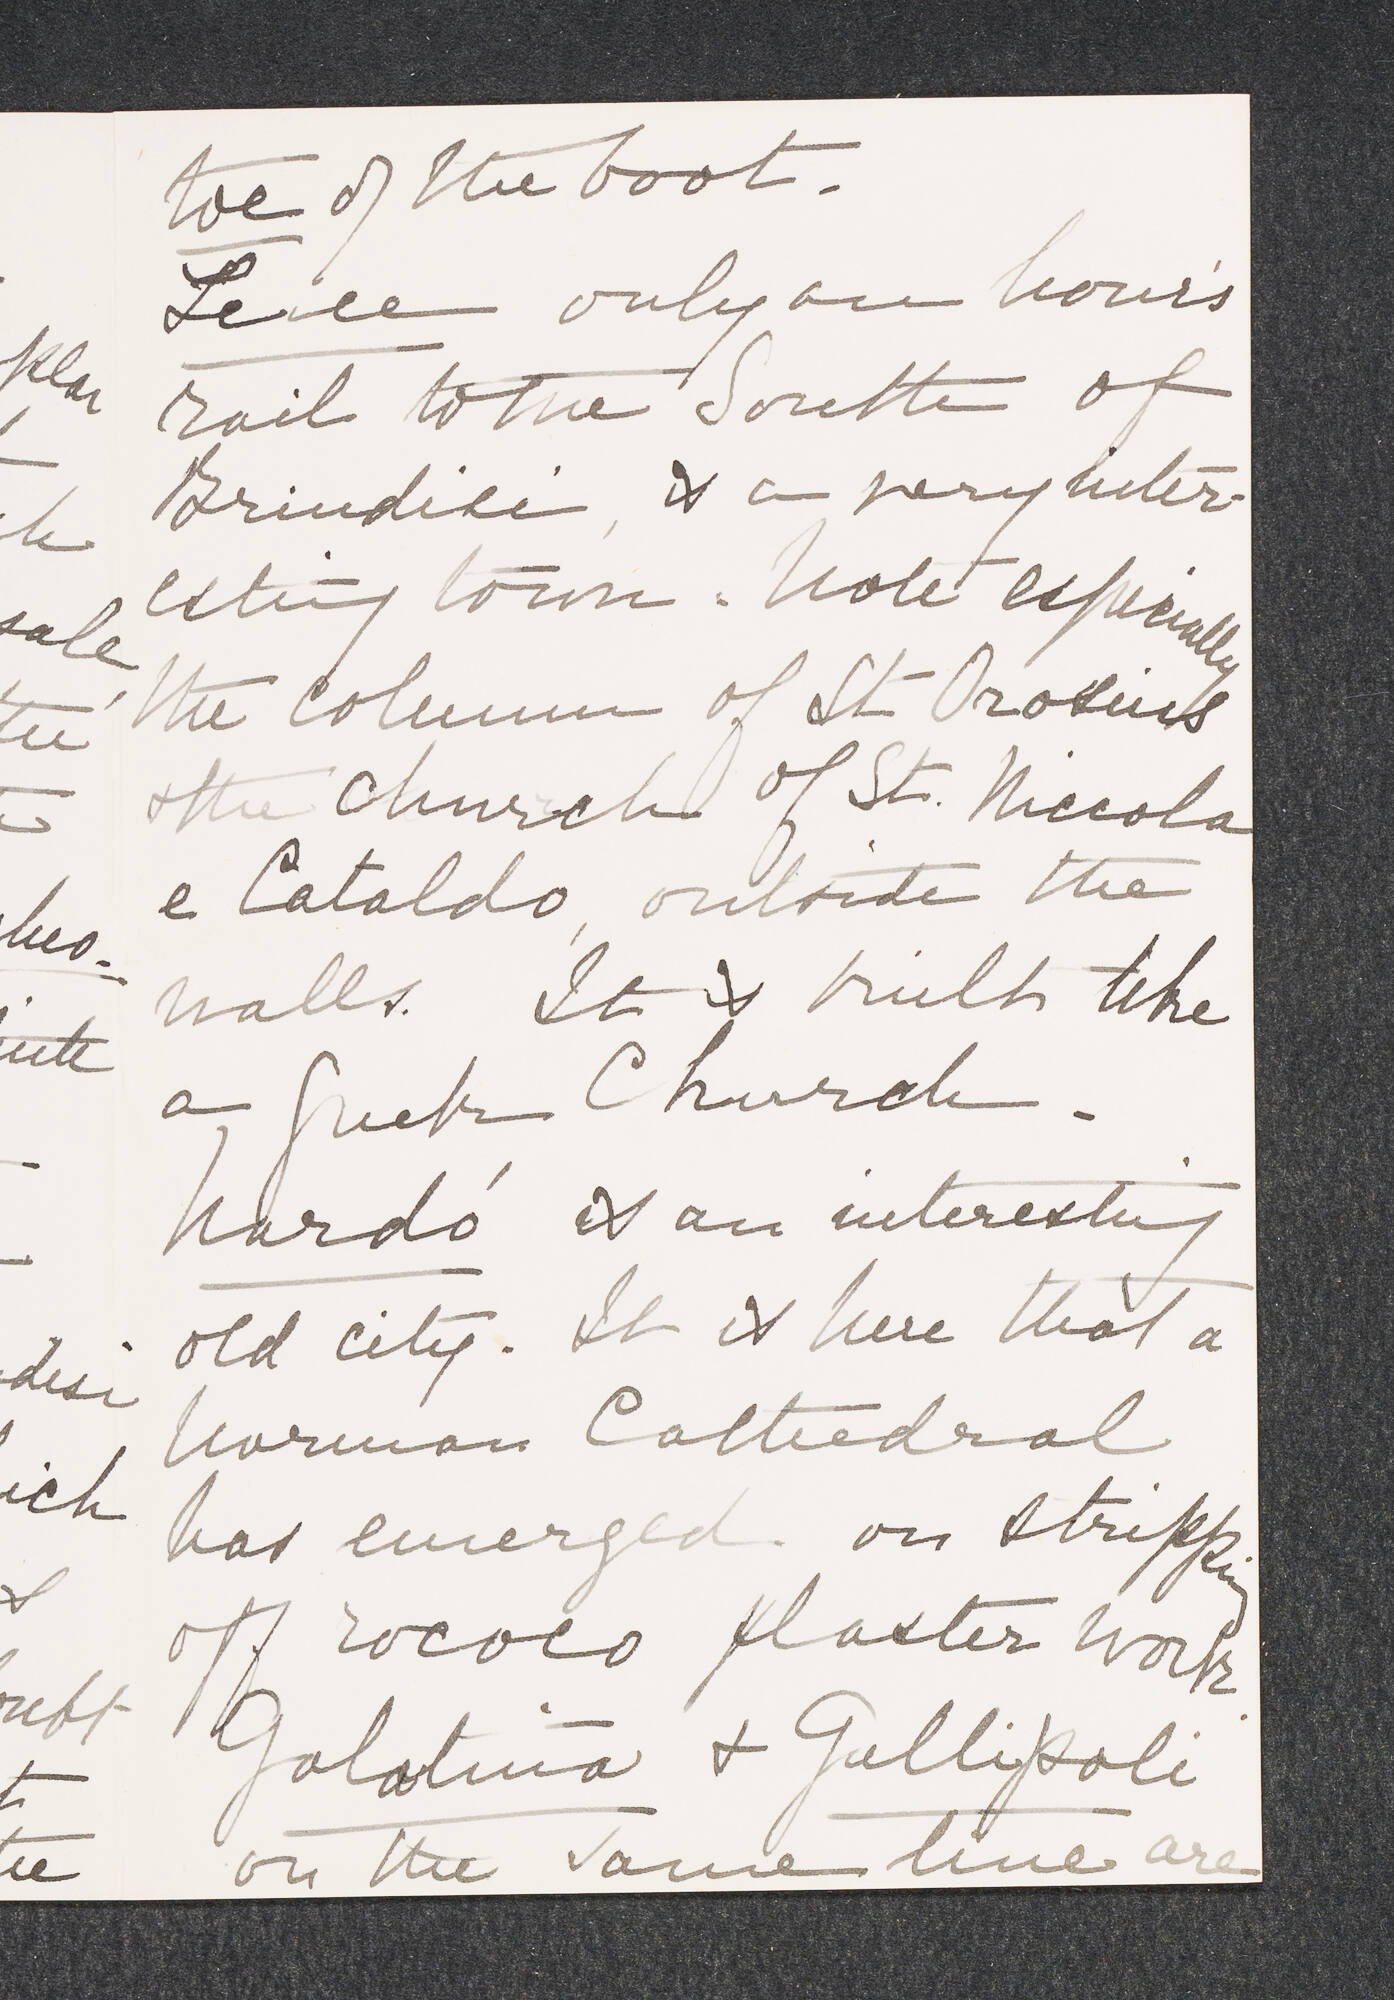 toe of the boot.
Lecce only an hour's
rail to the South of
Brindisi, is a very inter-
esting town. Note especially
the column of St Orosius
& the church of St. Niccola
e Cataldo, outside the
walls. It is built like
a Greek Church.
Nardó is an interesting
old city. It is here that a
Norman Cathedral
has emerged on stripping
off rococo plaster work.
Galatina & Gallipoli
on the same line are